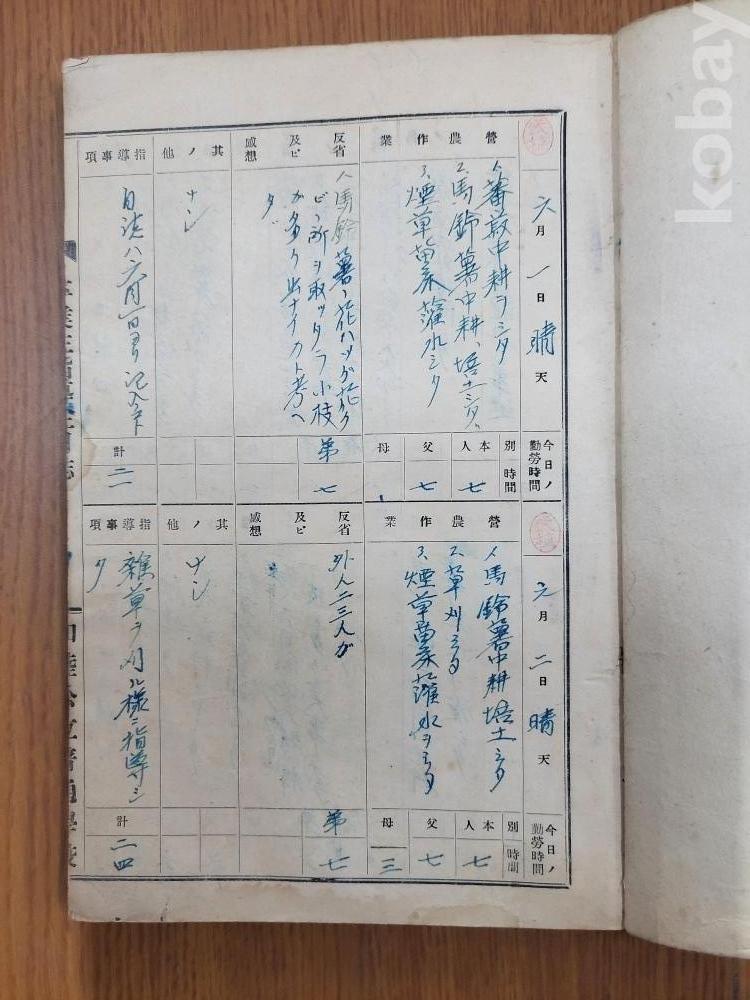 六月一日 晴天
營農作業
1、蕃菽中耕ヲシタ
2、馬鈴薯中耕、培土シタ、
3、煙草苗床灌水シタ
反省及ビ感想
1馬鈴薯ノ花ハツガ花ク
ビノ所ヲ取ッタラ小枝
ガ多ク出ナイカト考ヘ
タ
其ノ他
ナシ
指導事項
日誌ハ六月一日ヨリ記入
今日ノ勤勞時間
別 時間
本人 七
父 七
母
弟 七
計 二一
六月二日 晴天
營農作業
1、馬鈴薯中耕培土シタ
2、草刈シタ
3、煙草苗床灌水ヲシタ
反省及ビ感想
外人二三人ガ
其ノ他
ナシ
指導事項
雜草ヲ刈ル樣ニ指導シ
タ
今日ノ勤勞時間
別 時間
本人 七
父 七
母 三
弟 七
計 二四
kobay